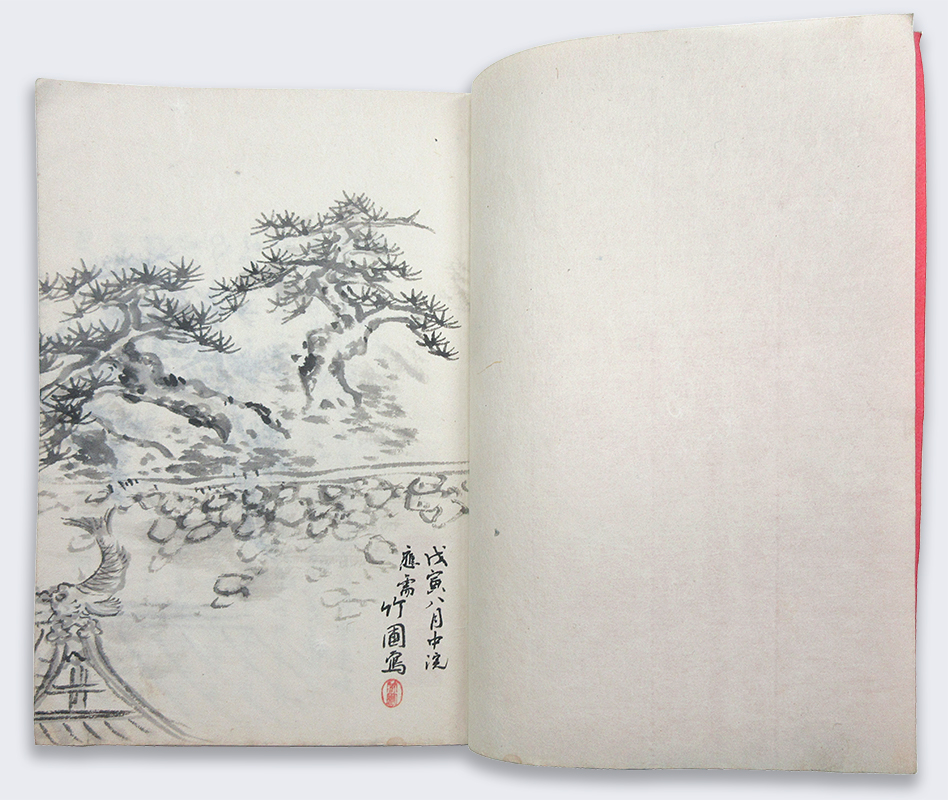 戊寅八月中浣
應需竹圃寫